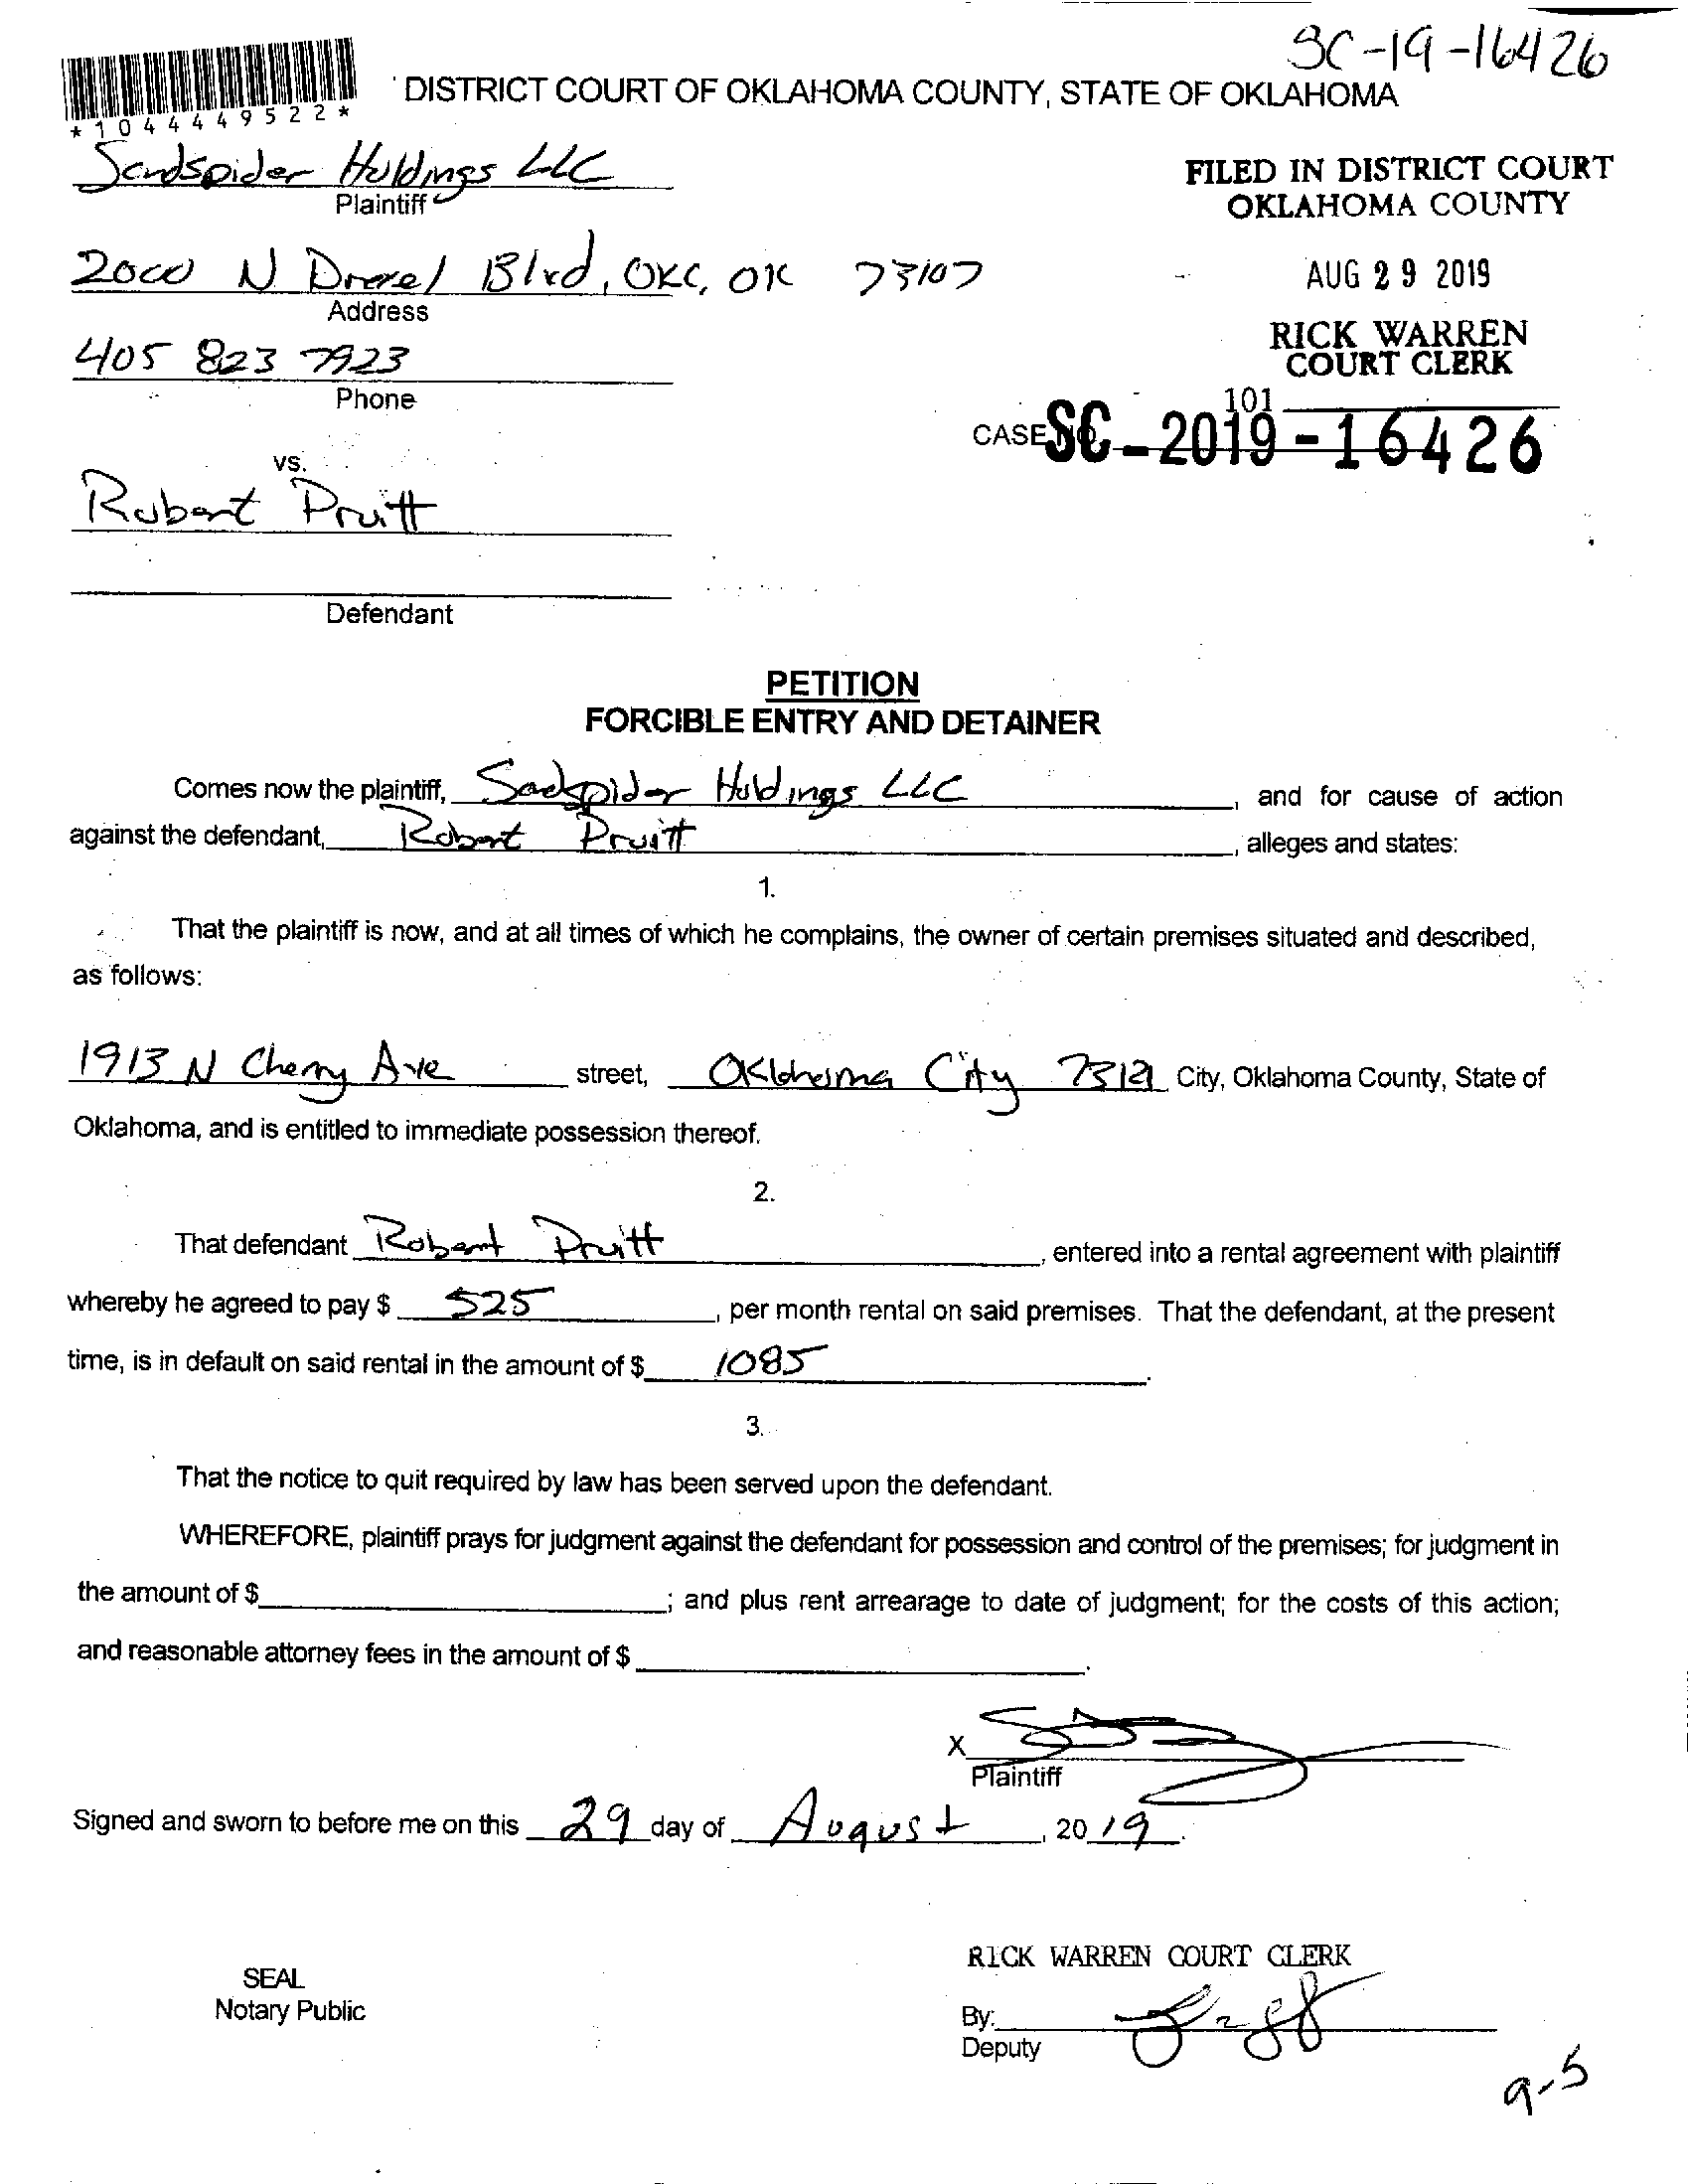 SC-19-16426
*1044449522*
DISTRICT COURT OF OKLAHOMA COUNTY, STATE OF OKLAHOMA
Sandspider Holdings LLC
Plaintiff
FILED IN DISTRICT COURT
OKLAHOMA COUNTY
2000 N Drexel Blvd, OKC, OK 73107
Address
AUG 29 2019
405 823 7923
Phone
RICK WARREN
COURT CLERK
101
CASE NO. SC-2019-16426
vs.
Robert Pruitt
Defendant
PETITION
FORCIBLE ENTRY AND DETAINER
Comes now the plaintiff, Sandspider Holdings LLC, and for cause of action
against the defendant, Robert Pruitt, alleges and states:
1.
That the plaintiff is now, and at all times of which he complains, the owner of certain premises situated and described,
as follows:
1913 N Cherry Ave street, Oklahoma City City, Oklahoma County, State of
Oklahoma, and is entitled to immediate possession thereof.
2.
That defendant Robert Pruitt, entered into a rental agreement with plaintiff
whereby he agreed to pay $ 525, per month rental on said premises. That the defendant, at the present
time, is in default on said rental in the amount of $ 1085.
3.
That the notice to quit required by law has been served upon the defendant.
WHEREFORE, plaintiff prays for judgment against the defendant for possession and control of the premises; for judgment in
the amount of $ ; and plus rent arrearage to date of judgment; for the costs of this action;
and reasonable attorney fees in the amount of $ .
X
Plaintiff
Signed and sworn to before me on this 29 day of August, 2019.
RICK WARREN COURT CLERK
SEAL
Notary Public
By:
Deputy
9-5